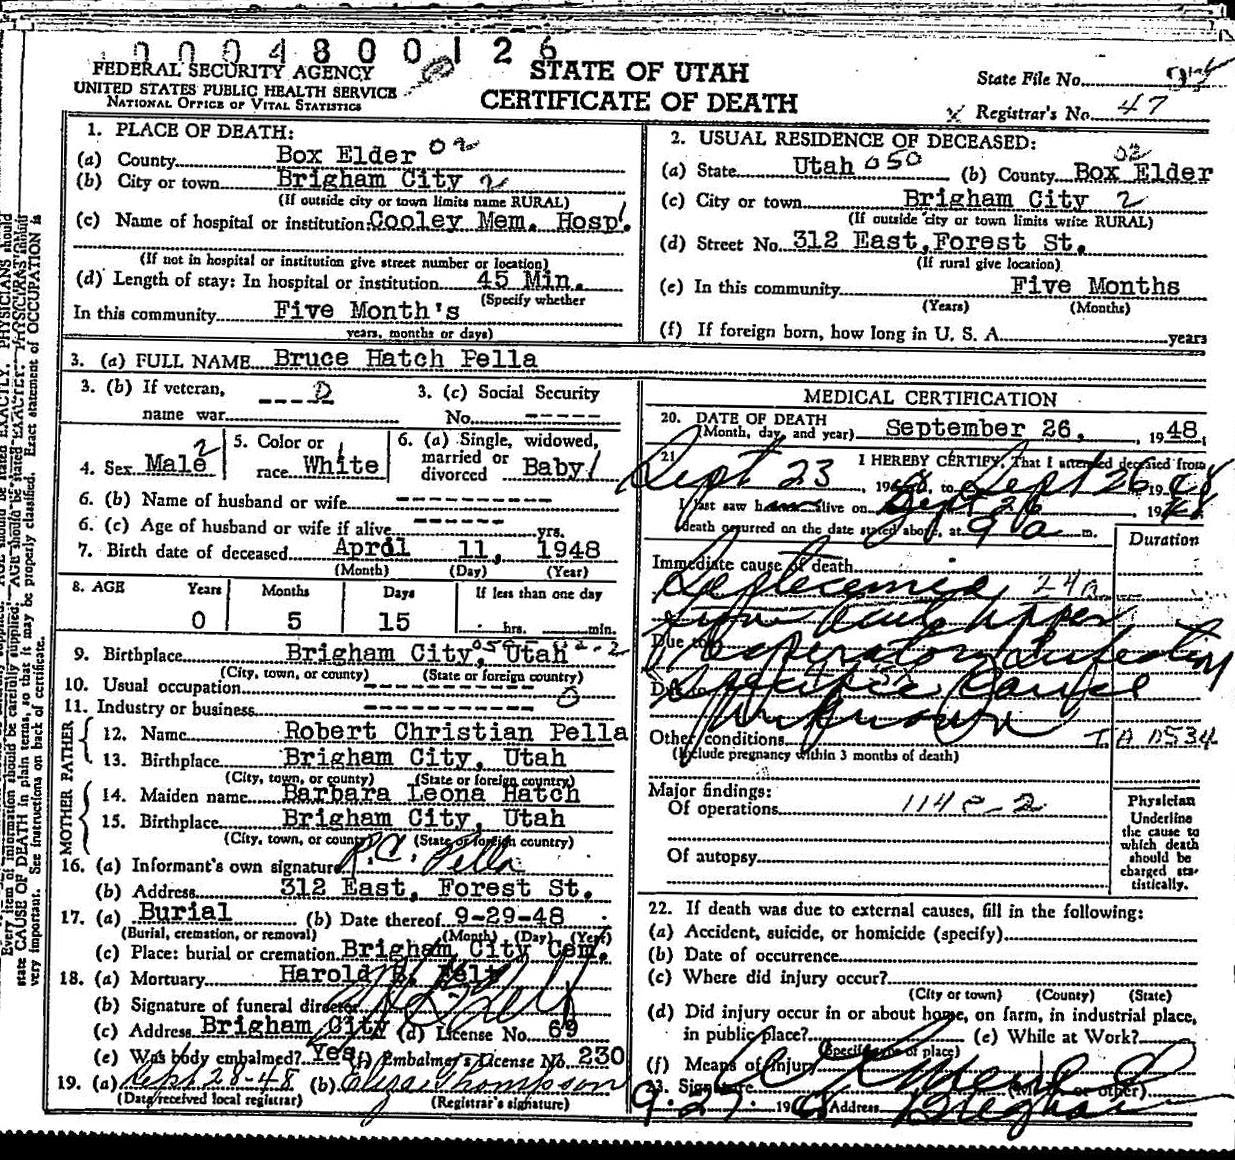 0 0 0 4 8 0 0 1 2 6
FEDERAL SECURITY AGENCY
UNITED STATES PUBLIC HEALTH SERVICE
NATIONAL OFFICE OF VITAL STATISTICS
STATE OF UTAH
CERTIFICATE OF DEATH
State File No.
Registrar's No. 47
1. PLACE OF DEATH:
(a) County Box Elder 02
(b) City or town Brigham City 2
(If outside city or town limits name RURAL)
(c) Name of hospital or institution: Cooley Mem. Hosp'.
(If not in hospital or institution give street number or location)
(d) Length of stay: In hospital or institution 45 Min.
(Specify whether
In this community Five Month's
years, months or days)
2. USUAL RESIDENCE OF DECEASED:
(a) State Utah 050 (b) County Box Elder 02
(c) City or town Brigham City 2
(If outside city or town limits write RURAL)
(d) Street No. 312 East, Forest St.
(If rural give location)
(e) In this community Five Months
(Years) (Months)
(f) If foreign born, how long in U. S. A. years
3. (a) FULL NAME Bruce Hatch Pella
3. (b) If veteran, name war
3. (c) Social Security No. ----
4. Sex Male 2
5. Color or race White 1
6. (a) Single, widowed, married or divorced Baby 1
6. (b) Name of husband or wife
6. (c) Age of husband or wife if alive yrs.
7. Birth date of deceased April 11, 1948
(Month) (Day) (Year)
8. AGE Years Months Days If less than one day
0 5 15 hrs. min.
9. Birthplace Brigham City, Utah
(City, town, or county) (State or foreign country)
10. Usual occupation
11. Industry or business
FATHER
12. Name Robert Christian Pella
13. Birthplace Brigham City, Utah
(City, town, or county) (State or foreign country)
MOTHER
14. Maiden name Barbara Leona Hatch
15. Birthplace Brigham City, Utah
(City, town, or county) (State or foreign country)
16. (a) Informant's own signature R.C. Pella
(b) Address 312 East, Forest St.
17. (a) Burial (b) Date thereof 9-29-48
(Burial, cremation, or removal) (Month) (Day) (Year)
(c) Place: burial or cremation Brigham City Cem.
18. (a) Mortuary Harold B. Felt
(b) Signature of funeral director
(c) Address Brigham City (d) License No. 69
(e) Was body embalmed? Yes (f) Embalmer's License No. 230
19. (a) Sept 28-48 (b) Thompson
(Date received local registrar) (Registrar's signature)
MEDICAL CERTIFICATION
20. DATE OF DEATH
(Month, day, and year) September 26, 1948.
21 I HEREBY CERTIFY, That I attended deceased from
Sept 23, 1948. to Sept 26 1948
I last saw him alive on Sept 26 1948
death occurred on the date stated above, at 9 a m.
Duration
Immediate cause of death
Septecemia
from acute upper
Due to Respiratory Infection
Due to Specific Cause
Unknown
Other conditions
(Include pregnancy within 3 months of death)
Major findings:
Of operations 114c-2
Of autopsy
Physician
Underline
the cause to
which death
should be
charged sta-
tistically.
22. If death was due to external causes, fill in the following:
(a) Accident, suicide, or homicide (specify)
(b) Date of occurrence
(c) Where did injury occur?
(City or town) (County) (State)
(d) Did injury occur in or about home, on farm, in industrial place,
in public place? (e) While at Work?
(Specify type of place)
(f) Means of Injury
23. Signature (M.D. or other)
9-27 1948 Address Brigham